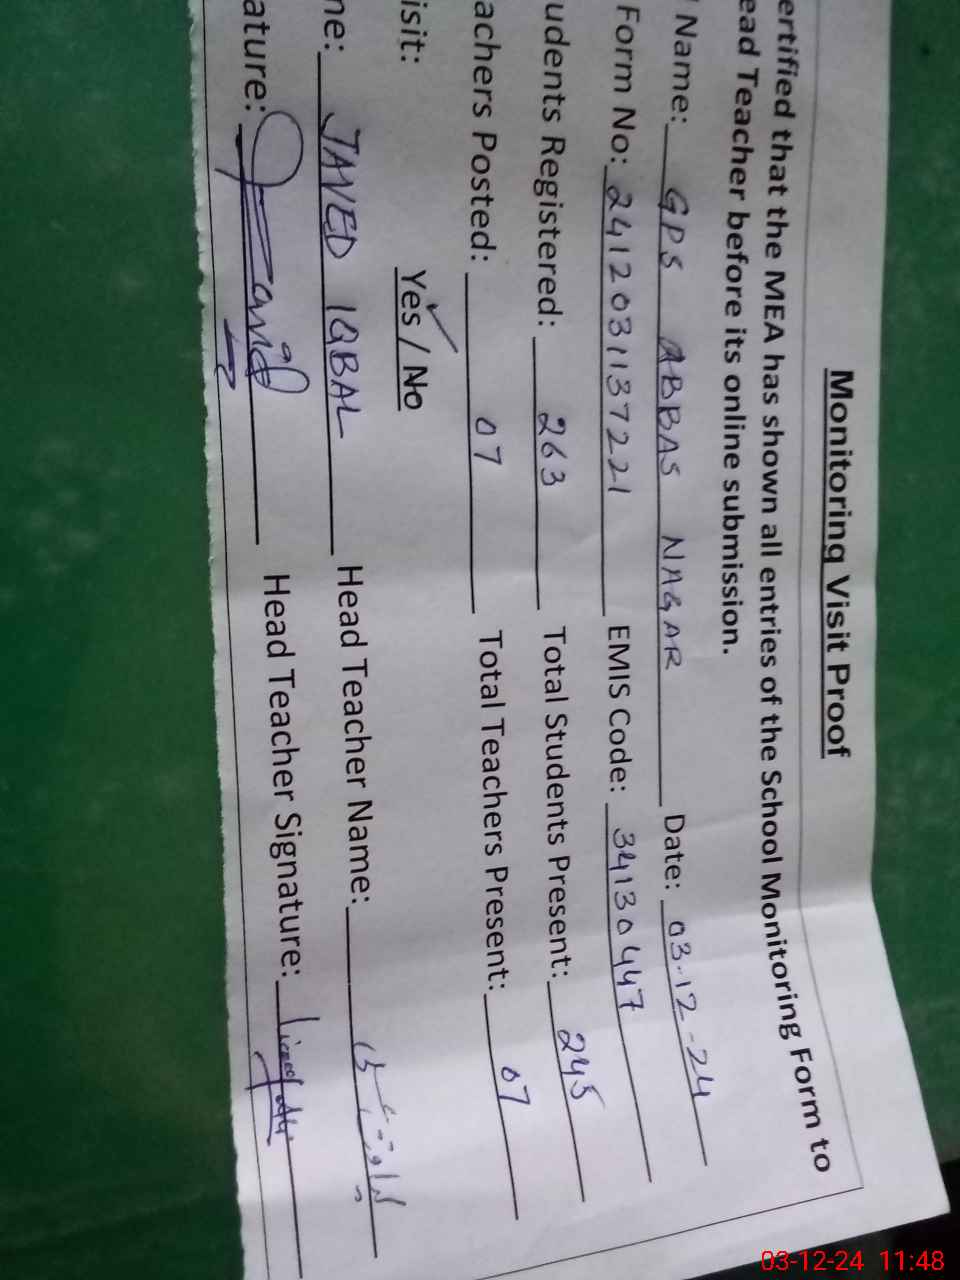 Monitoring Visit Proof
ertified that the MEA has shown all entries of the School Monitoring Form to
ead Teacher before its online submission.
Name: GPS ABBAS NAGAR Date: 03-12-24
Form No: 2412031137221 EMIS Code: 34130447
udents Registered: 263 Total Students Present: 245
achers Posted: 07 Total Teachers Present: 07
isit: Yes / No
ne: JAVED IQBAL Head Teacher Name:
ature: Head Teacher Signature:
03-12-24 11:48